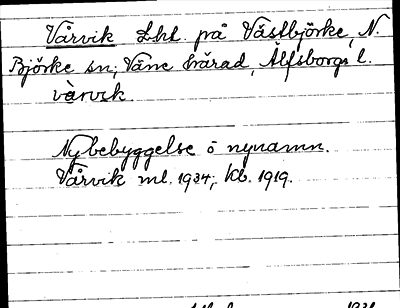 Vårvik Lht. på Västbjörke, N.
Björke sn; Väne härad, Älfsborgs l.
vàrvik.
Nybebyggelse o nynamn.
Vårvik ml. 1934; kb. 1919.